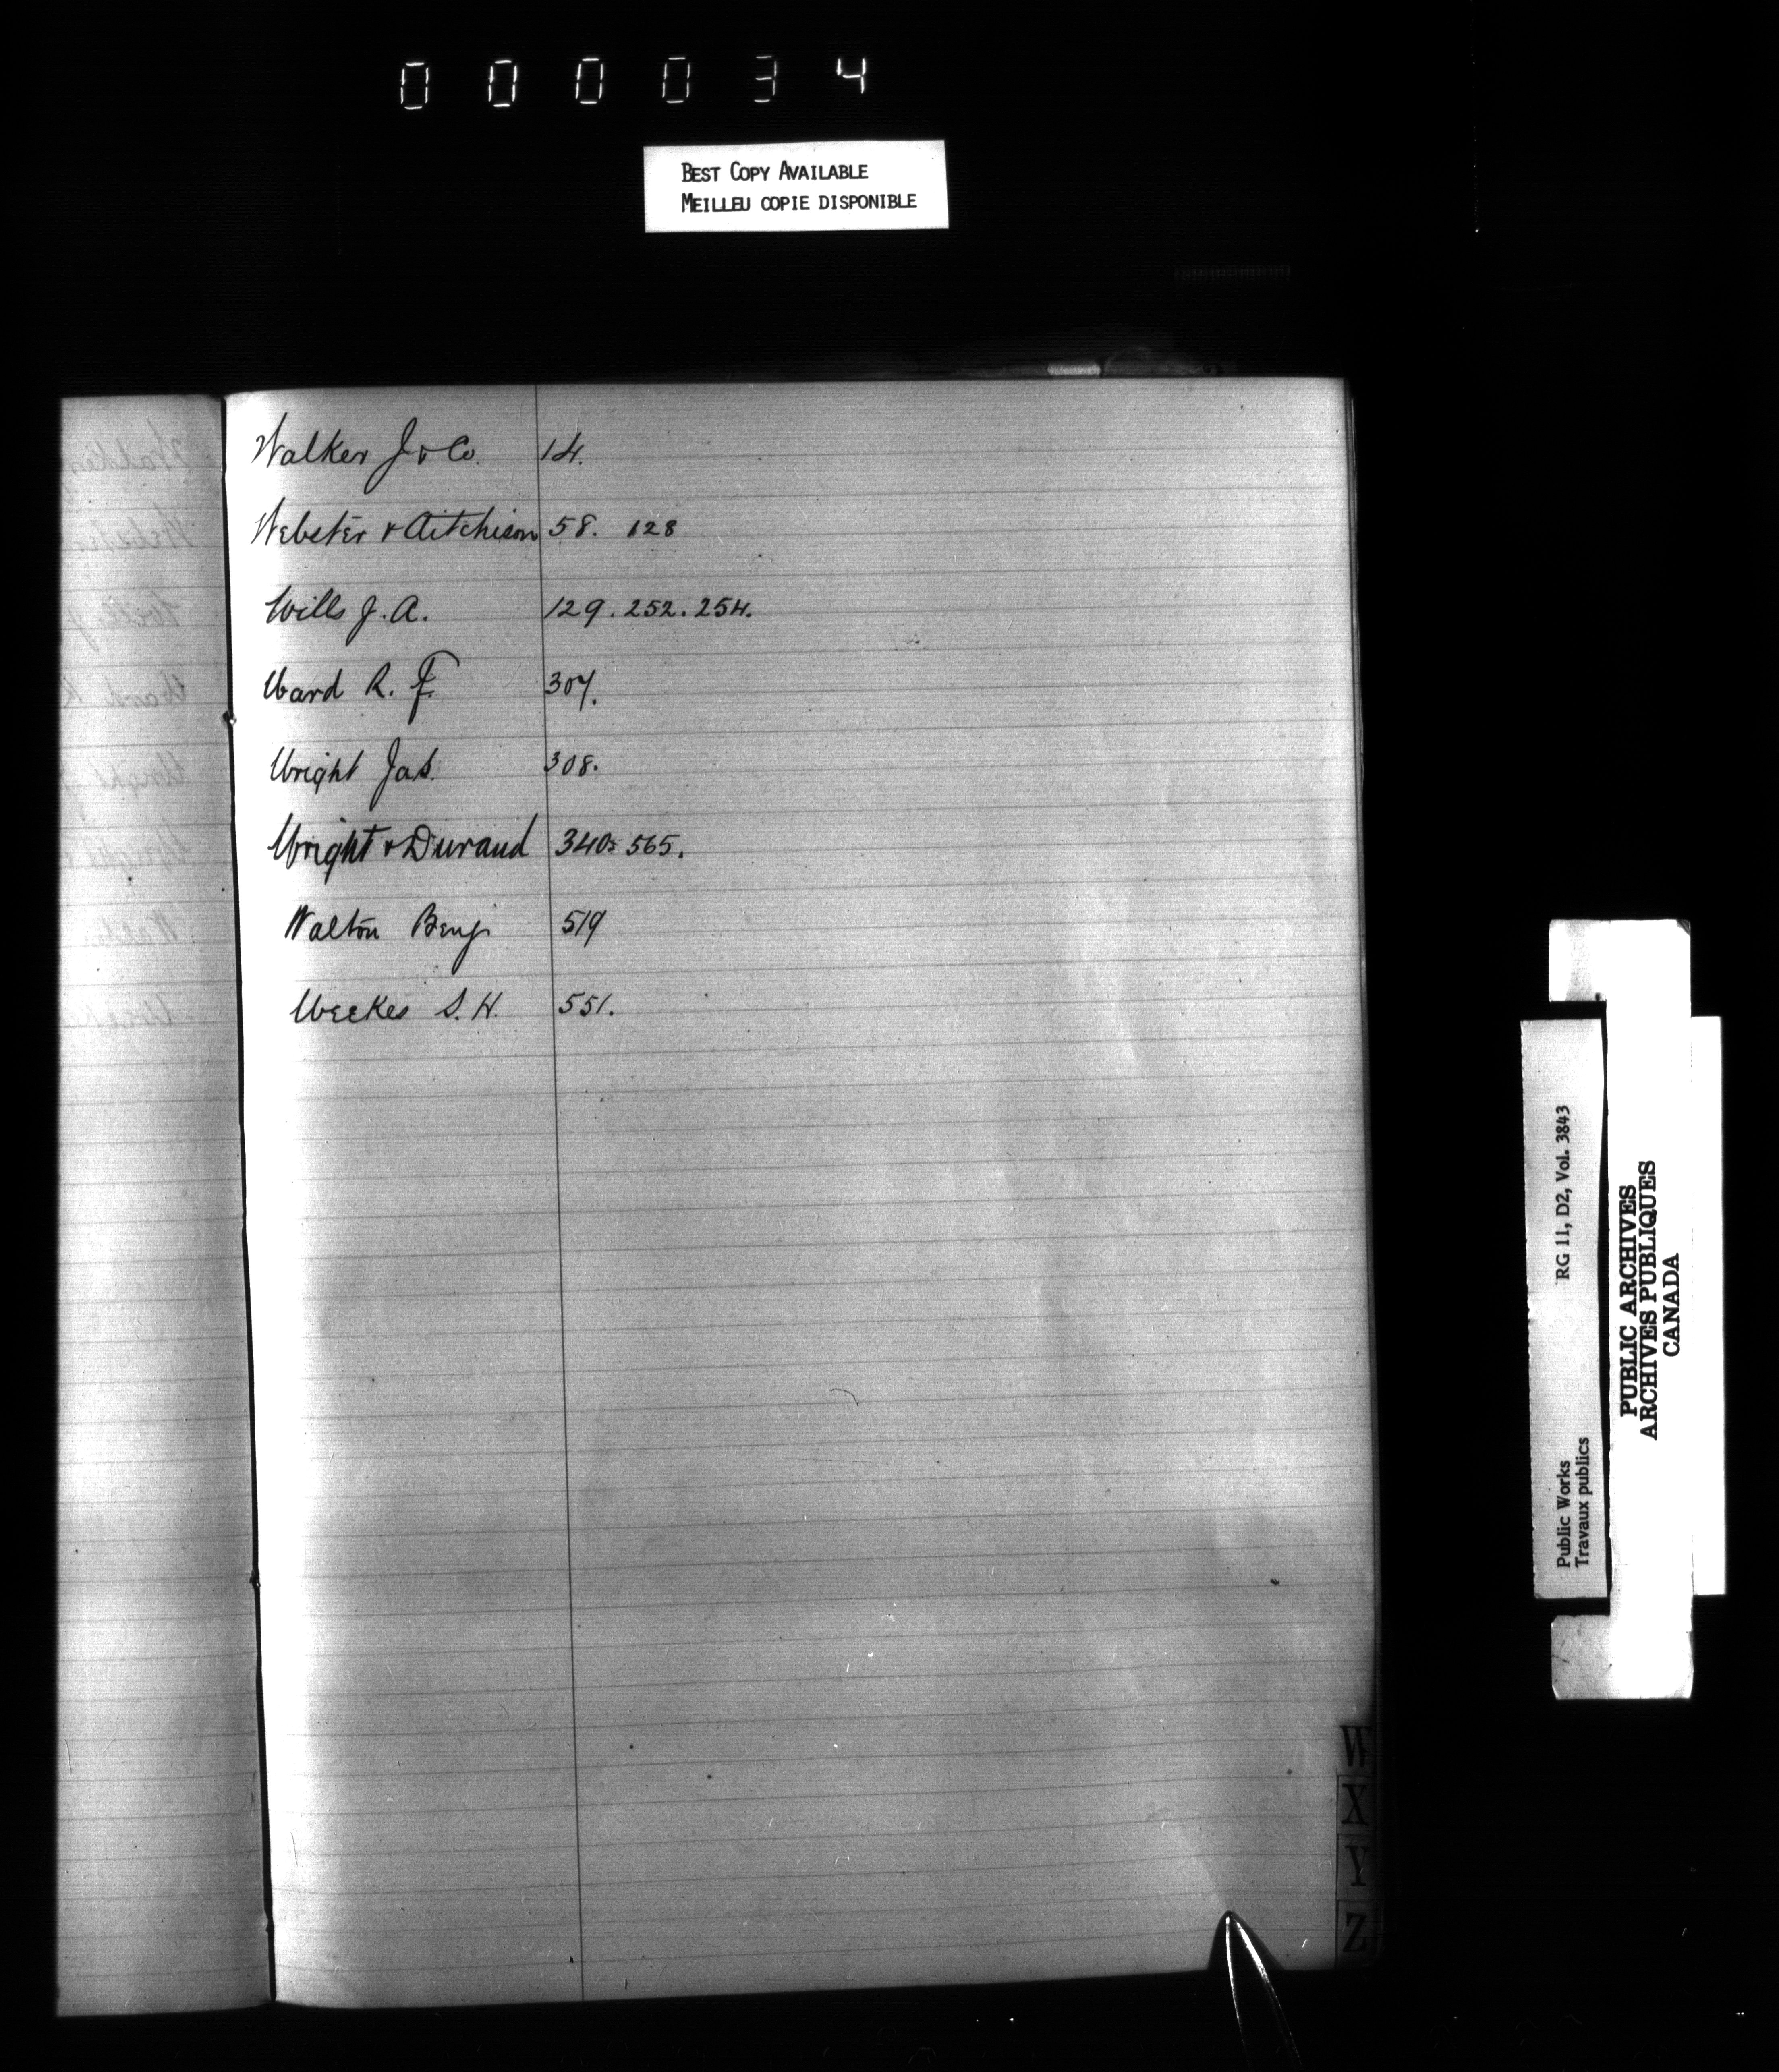 000034
BEST COPY AVAILABLE
MEILLEU COPIE DISPONIBLE
Walker J & Co. 14.
Webster & Aitchison 58. 128
Wills J. A. 129. 252. 254.
Ward R. F. 307.
Wright Jas. 308.
Wright & Durand 340. 565.
Walton Benj 519
Weekes S. H. 551.
W
X
Y
Z
Public Works RG 11, D2, Vol. 3843
Travaux publics
PUBLIC ARCHIVES
ARCHIVES PUBLIQUES
CANADA